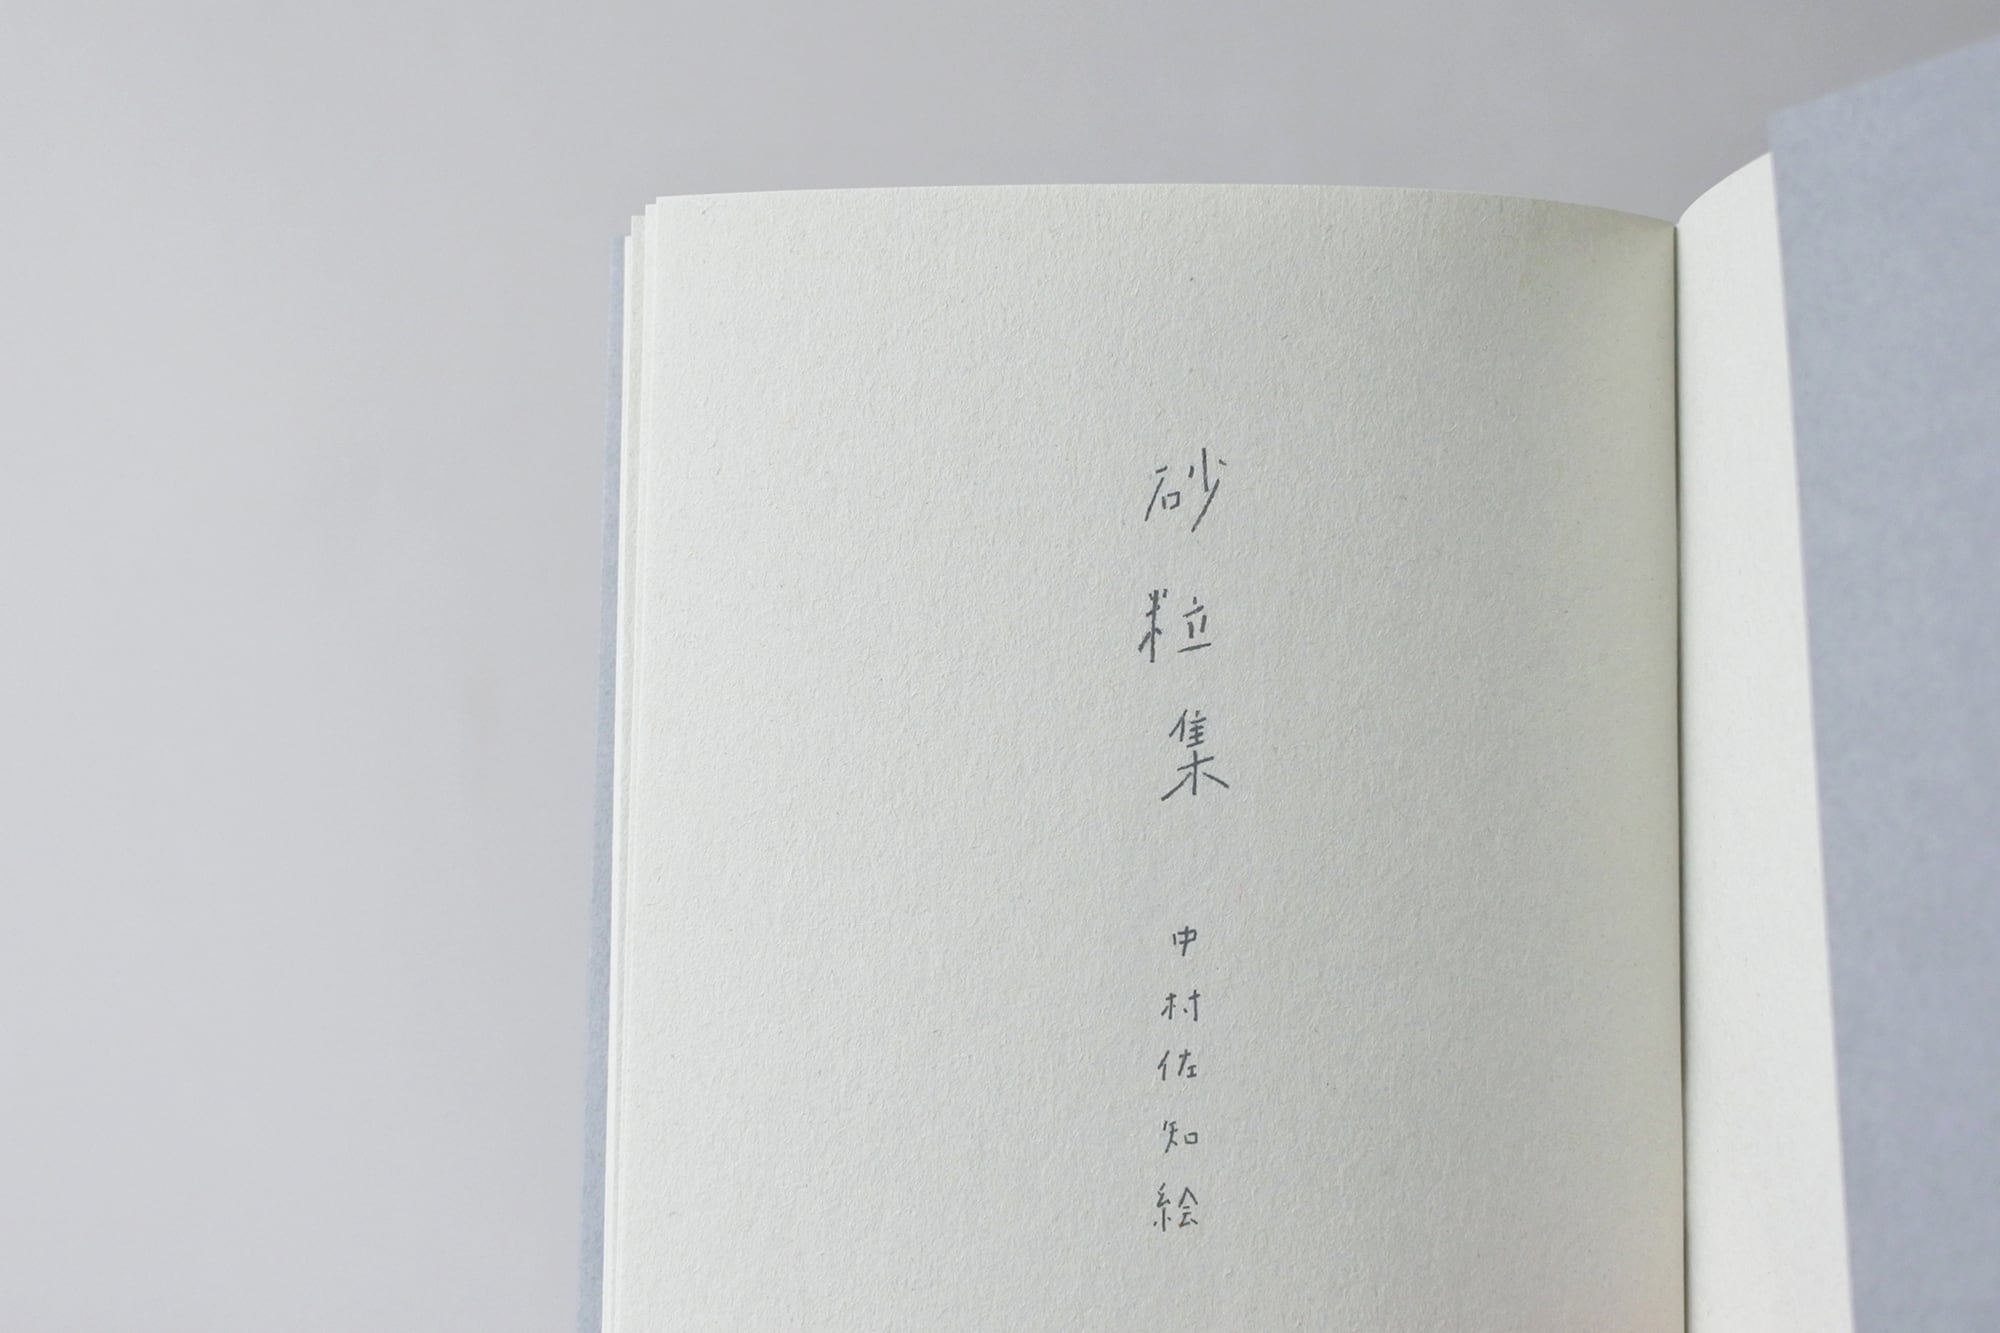 砂粒集
中村佐知絵